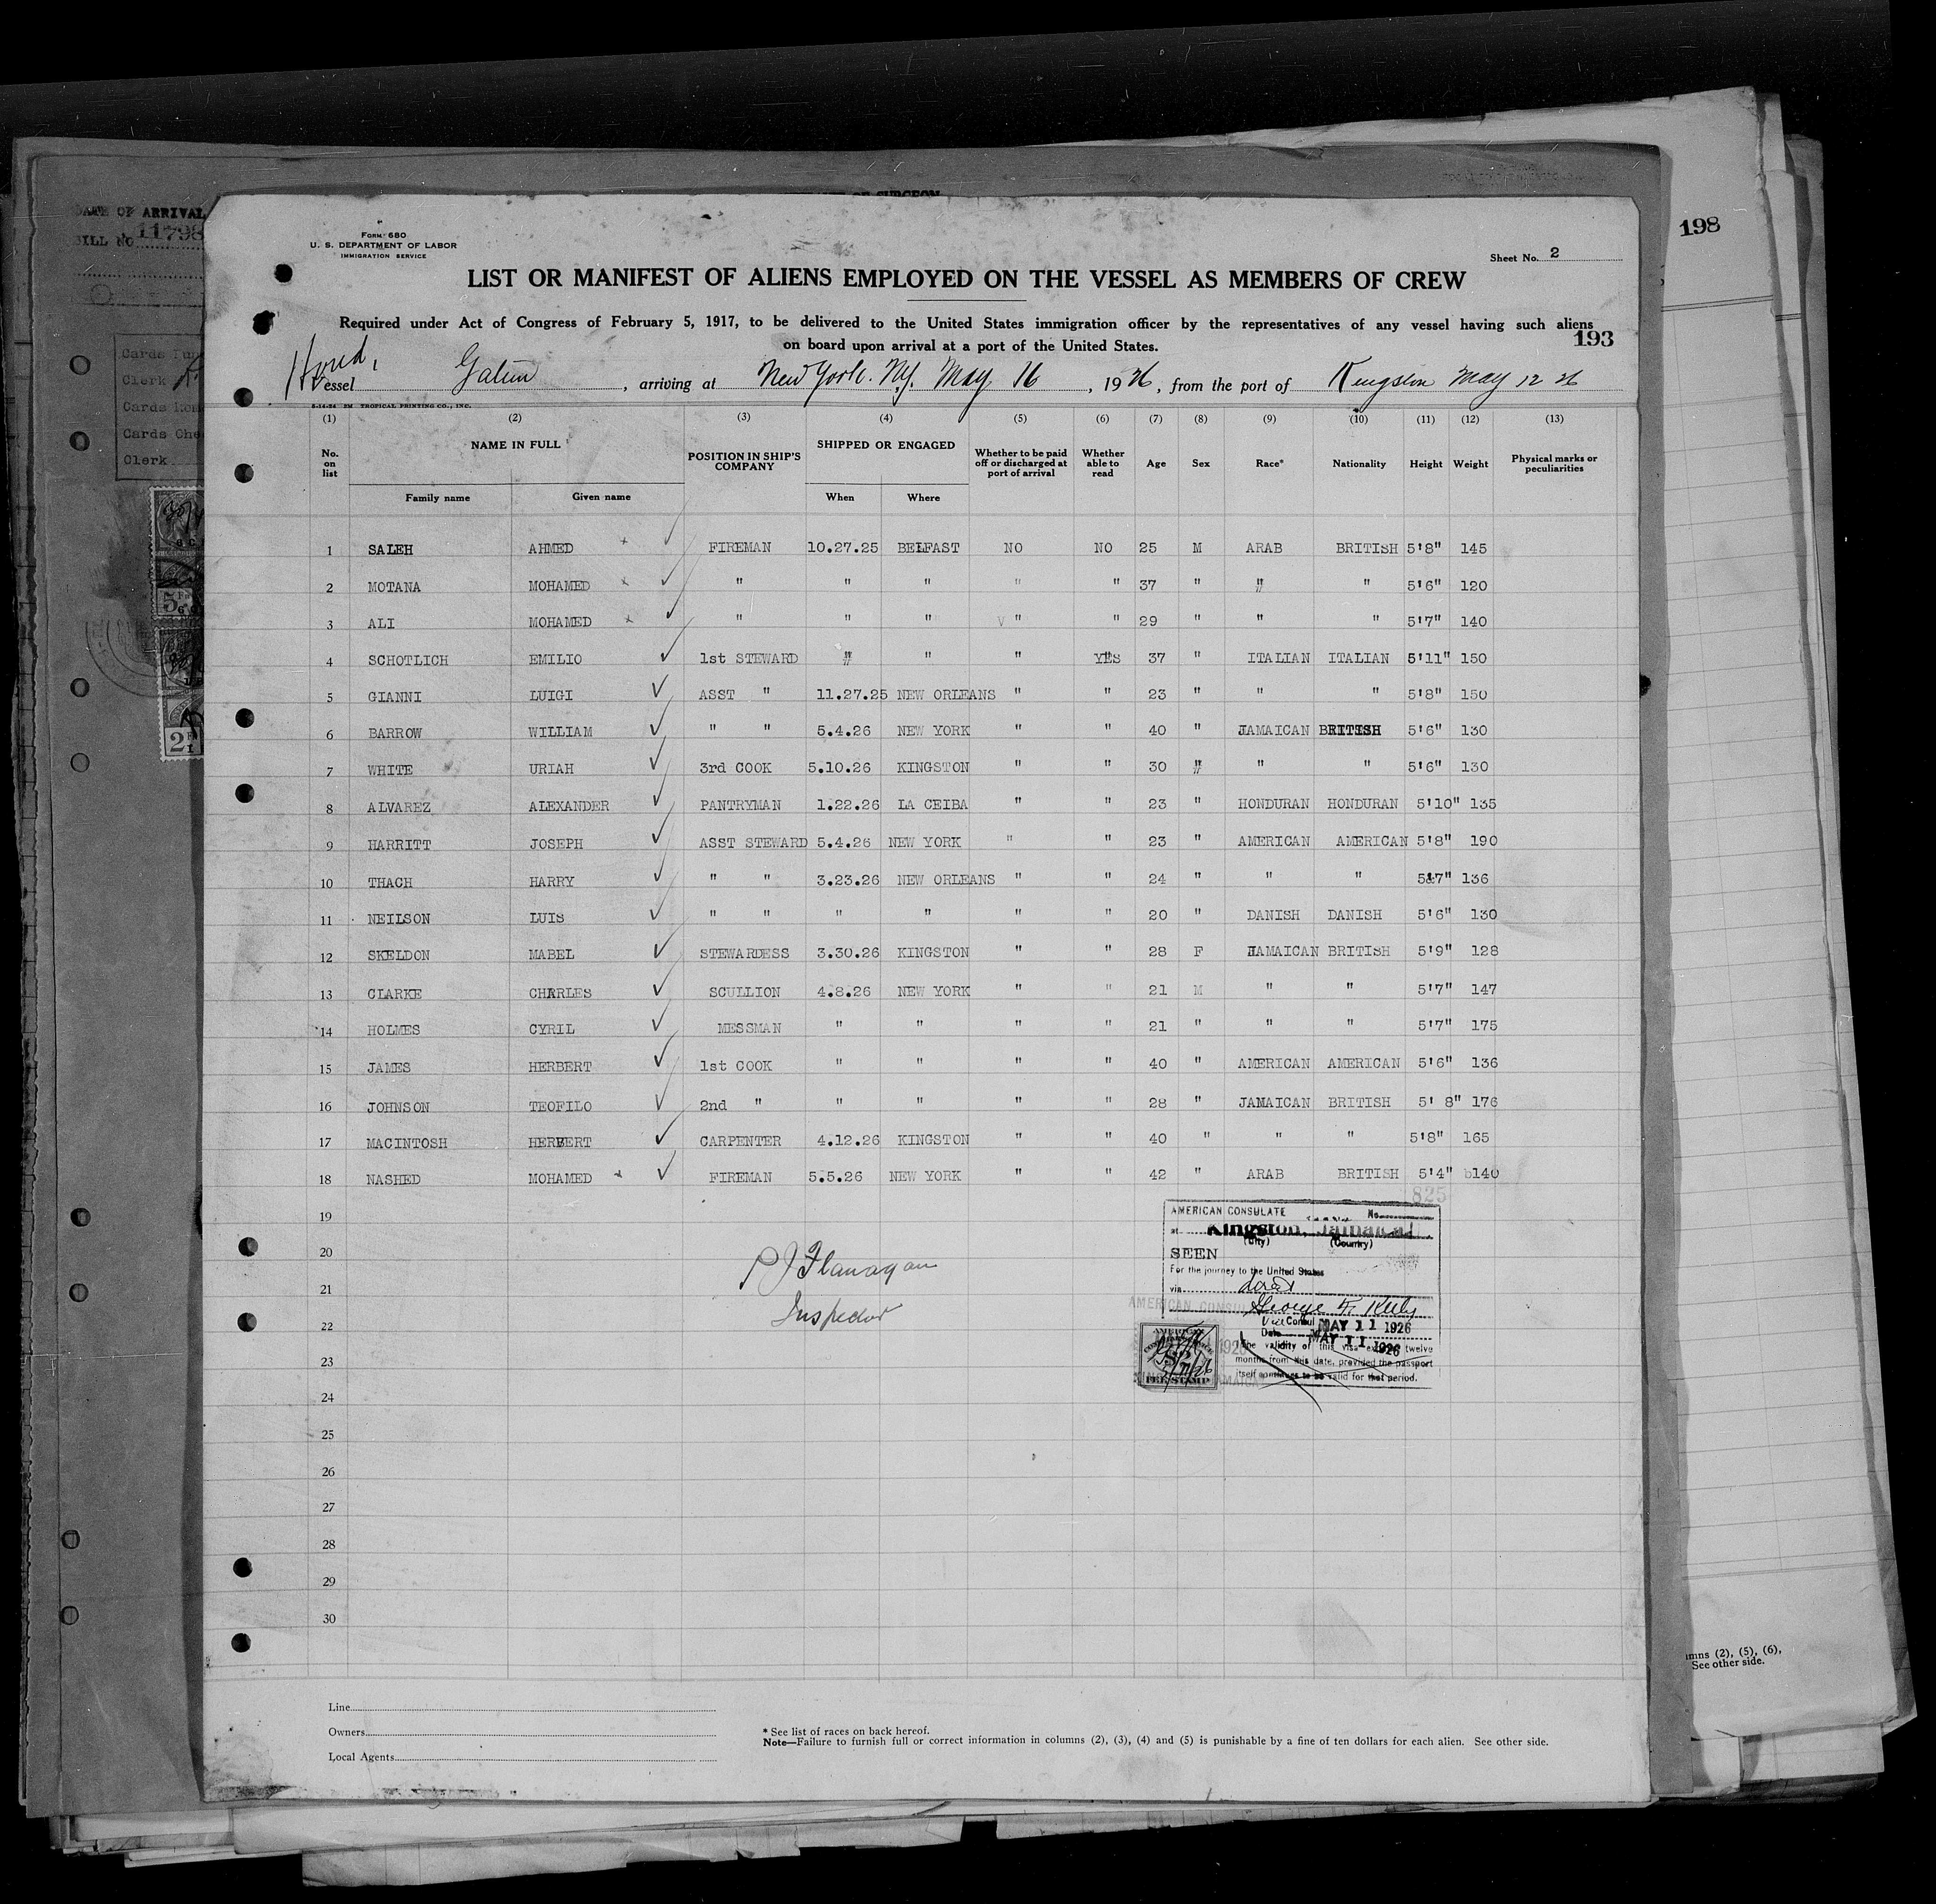 DATE OF ARRIVAL
BILL No. 11798
Cards
Clerk
Cards
Cards
Clerk
198
FORM 680
U. S. DEPARTMENT OF LABOR
IMMIGRATION SERVICE
Sheet No. 2
LIST OR MANIFEST OF ALIENS EMPLOYED ON THE VESSEL AS MEMBERS OF CREW
Required under Act of Congress of February 5, 1917, to be delivered to the United States immigration officer by the representatives of any vessel having such aliens
on board upon arrival at a port of the United States.
193
Hond,
Vessel Galun, arriving at New York. N.Y. May 16, 1926, from the port of Kingston May 12 26
5-14-24 2M TROPICAL PRINTING CO., INC.
(1) (2) (3) (4) (5) (6) (7) (8) (9) (10) (11) (12) (13)
No. on list NAME IN FULL POSITION IN SHIP'S COMPANY SHIPPED OR ENGAGED Whether to be paid off or discharged at port of arrival Whether able to read Age Sex Race* Nationality Height Weight Physical marks or peculiarities
Family name Given name When Where
1 SALEH AHMED FIREMAN 10.27.25 BELFAST NO NO 25 M ARAB BRITISH 5'8" 145
2 MOTANA MOHAMED " " " " " 37 " " " 5'6" 120
3 ALI MOHAMED " " " " " 29 " " " 5'7" 140
4 SCHOTLICH EMILIO 1st STEWARD " " " YES 37 " ITALIAN ITALIAN 5'11" 150
5 GIANNI LUIGI ASST " 11.27.25 NEW ORLEANS " " 23 " " " 5'8" 150
6 BARROW WILLIAM " " 5.4.26 NEW YORK " " 40 " JAMAICAN BRITISH 5'6" 130
7 WHITE URIAH 3rd COOK 5.10.26 KINGSTON " " 30 " " " 5'6" 130
8 ALVAREZ ALEXANDER PANTRYMAN 1.22.26 LA CEIBA " " 23 " HONDURAN HONDURAN 5'10" 135
9 HARRITT JOSEPH ASST STEWARD 5.4.26 NEW YORK " " 23 " AMERICAN AMERICAN 5'8" 190
10 THACH HARRY " " 3.23.26 NEW ORLEANS " " 24 " " " 5'7" 136
11 NEILSON LUIS " " " " " " 20 " DANISH DANISH 5'6" 130
12 SKELDON MABEL STEWARDESS 3.30.26 KINGSTON " " 28 F JAMAICAN BRITISH 5'9" 128
13 CLARKE CHARLES SCULLION 4.8.26 NEW YORK " " 21 M " " 5'7" 147
14 HOLMES CYRIL MESSMAN " " " " 21 " " " 5'7" 175
15 JAMES HERBERT 1st COOK " " " " 40 " AMERICAN AMERICAN 5'6" 136
16 JOHNSON TEOFILO 2nd " " " " " 28 " JAMAICAN BRITISH 5' 8" 176
17 MACINTOSH HERBERT CARPENTER 4.12.26 KINGSTON " " 40 " " " 5'8" 165
18 NASHED MOHAMED FIREMAN 5.5.26 NEW YORK " " 42 " ARAB BRITISH 5'4" 140
19
20
21
22
23
24
25
26
27
28
29
30
P J Flanagan
Inspector
825
AMERICAN CONSULATE No.
at Kingston, Jamaica
(City) (Country)
SEEN
For the journey to the United States
via
Vice Consul
Date MAY 11 1926
MAY 11 1926
The validity of this visa twelve
months from this date, provided the passport
itself continues to be valid for that period.
AMERICAN
FEE STAMP
Line
Owners
Local Agents
* See list of races on back hereof.
Note—Failure to furnish full or correct information in columns (2), (3), (4) and (5) is punishable by a fine of ten dollars for each alien. See other side.
(2), (5), (6),
See other side.